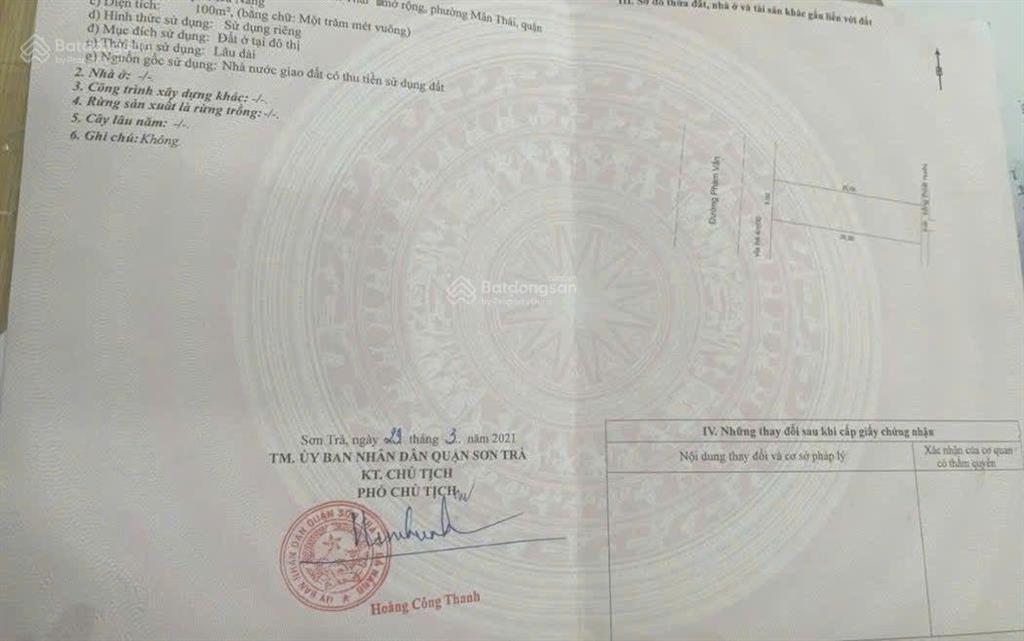 mở rộng, phường Mân Thái, quận
c) Diện tích: 100m², (bằng chữ: Một trăm mét vuông)
d) Hình thức sử dụng: Sử dụng riêng
đ) Mục đích sử dụng: Đất ở tại đô thị
e) Thời hạn sử dụng: Lâu dài
g) Nguồn gốc sử dụng: Nhà nước giao đất có thu tiền sử dụng đất
2. Nhà ở: -/-
3. Công trình xây dựng khác: -/-
4. Rừng sản xuất là rừng trồng: -/-
5. Cây lâu năm: -/-
6. Ghi chú: Không
III. Sơ đồ thửa đất, nhà ở và tài sản khác gắn liền với đất
B
Đường Phạm Vấn
5.00
Batdongsan
by PropertyGuru
Sơn Trà, ngày 29 tháng 3 năm 2021
TM. ỦY BAN NHÂN DÂN QUẬN SƠN TRÀ
KT. CHỦ TỊCH
PHÓ CHỦ TỊCH
Hoàng Công Thanh
IV. Những thay đổi sau khi cấp giấy chứng nhận
Nội dung thay đổi và cơ sở pháp lý
Xác nhận của cơ quan
có thẩm quyền